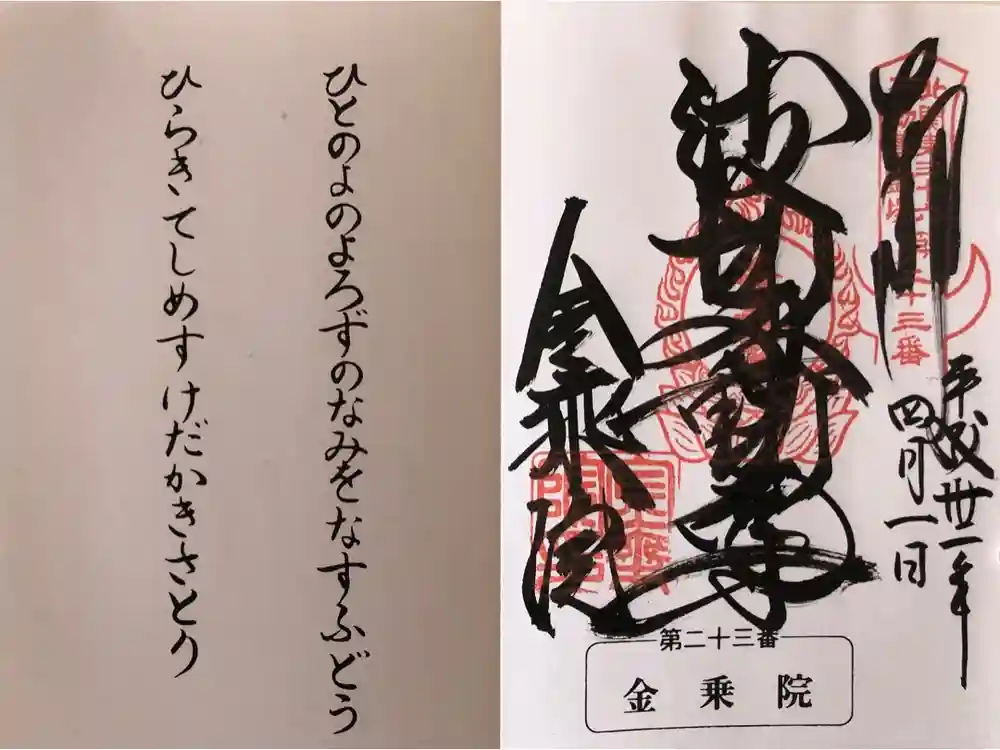 平成卅一年
四月一日
波切不動尊
金乗院
第二十三番
金乗院
ひとのよのよろずのなみをなすふどう
ひらきてしめすけだかきさとり